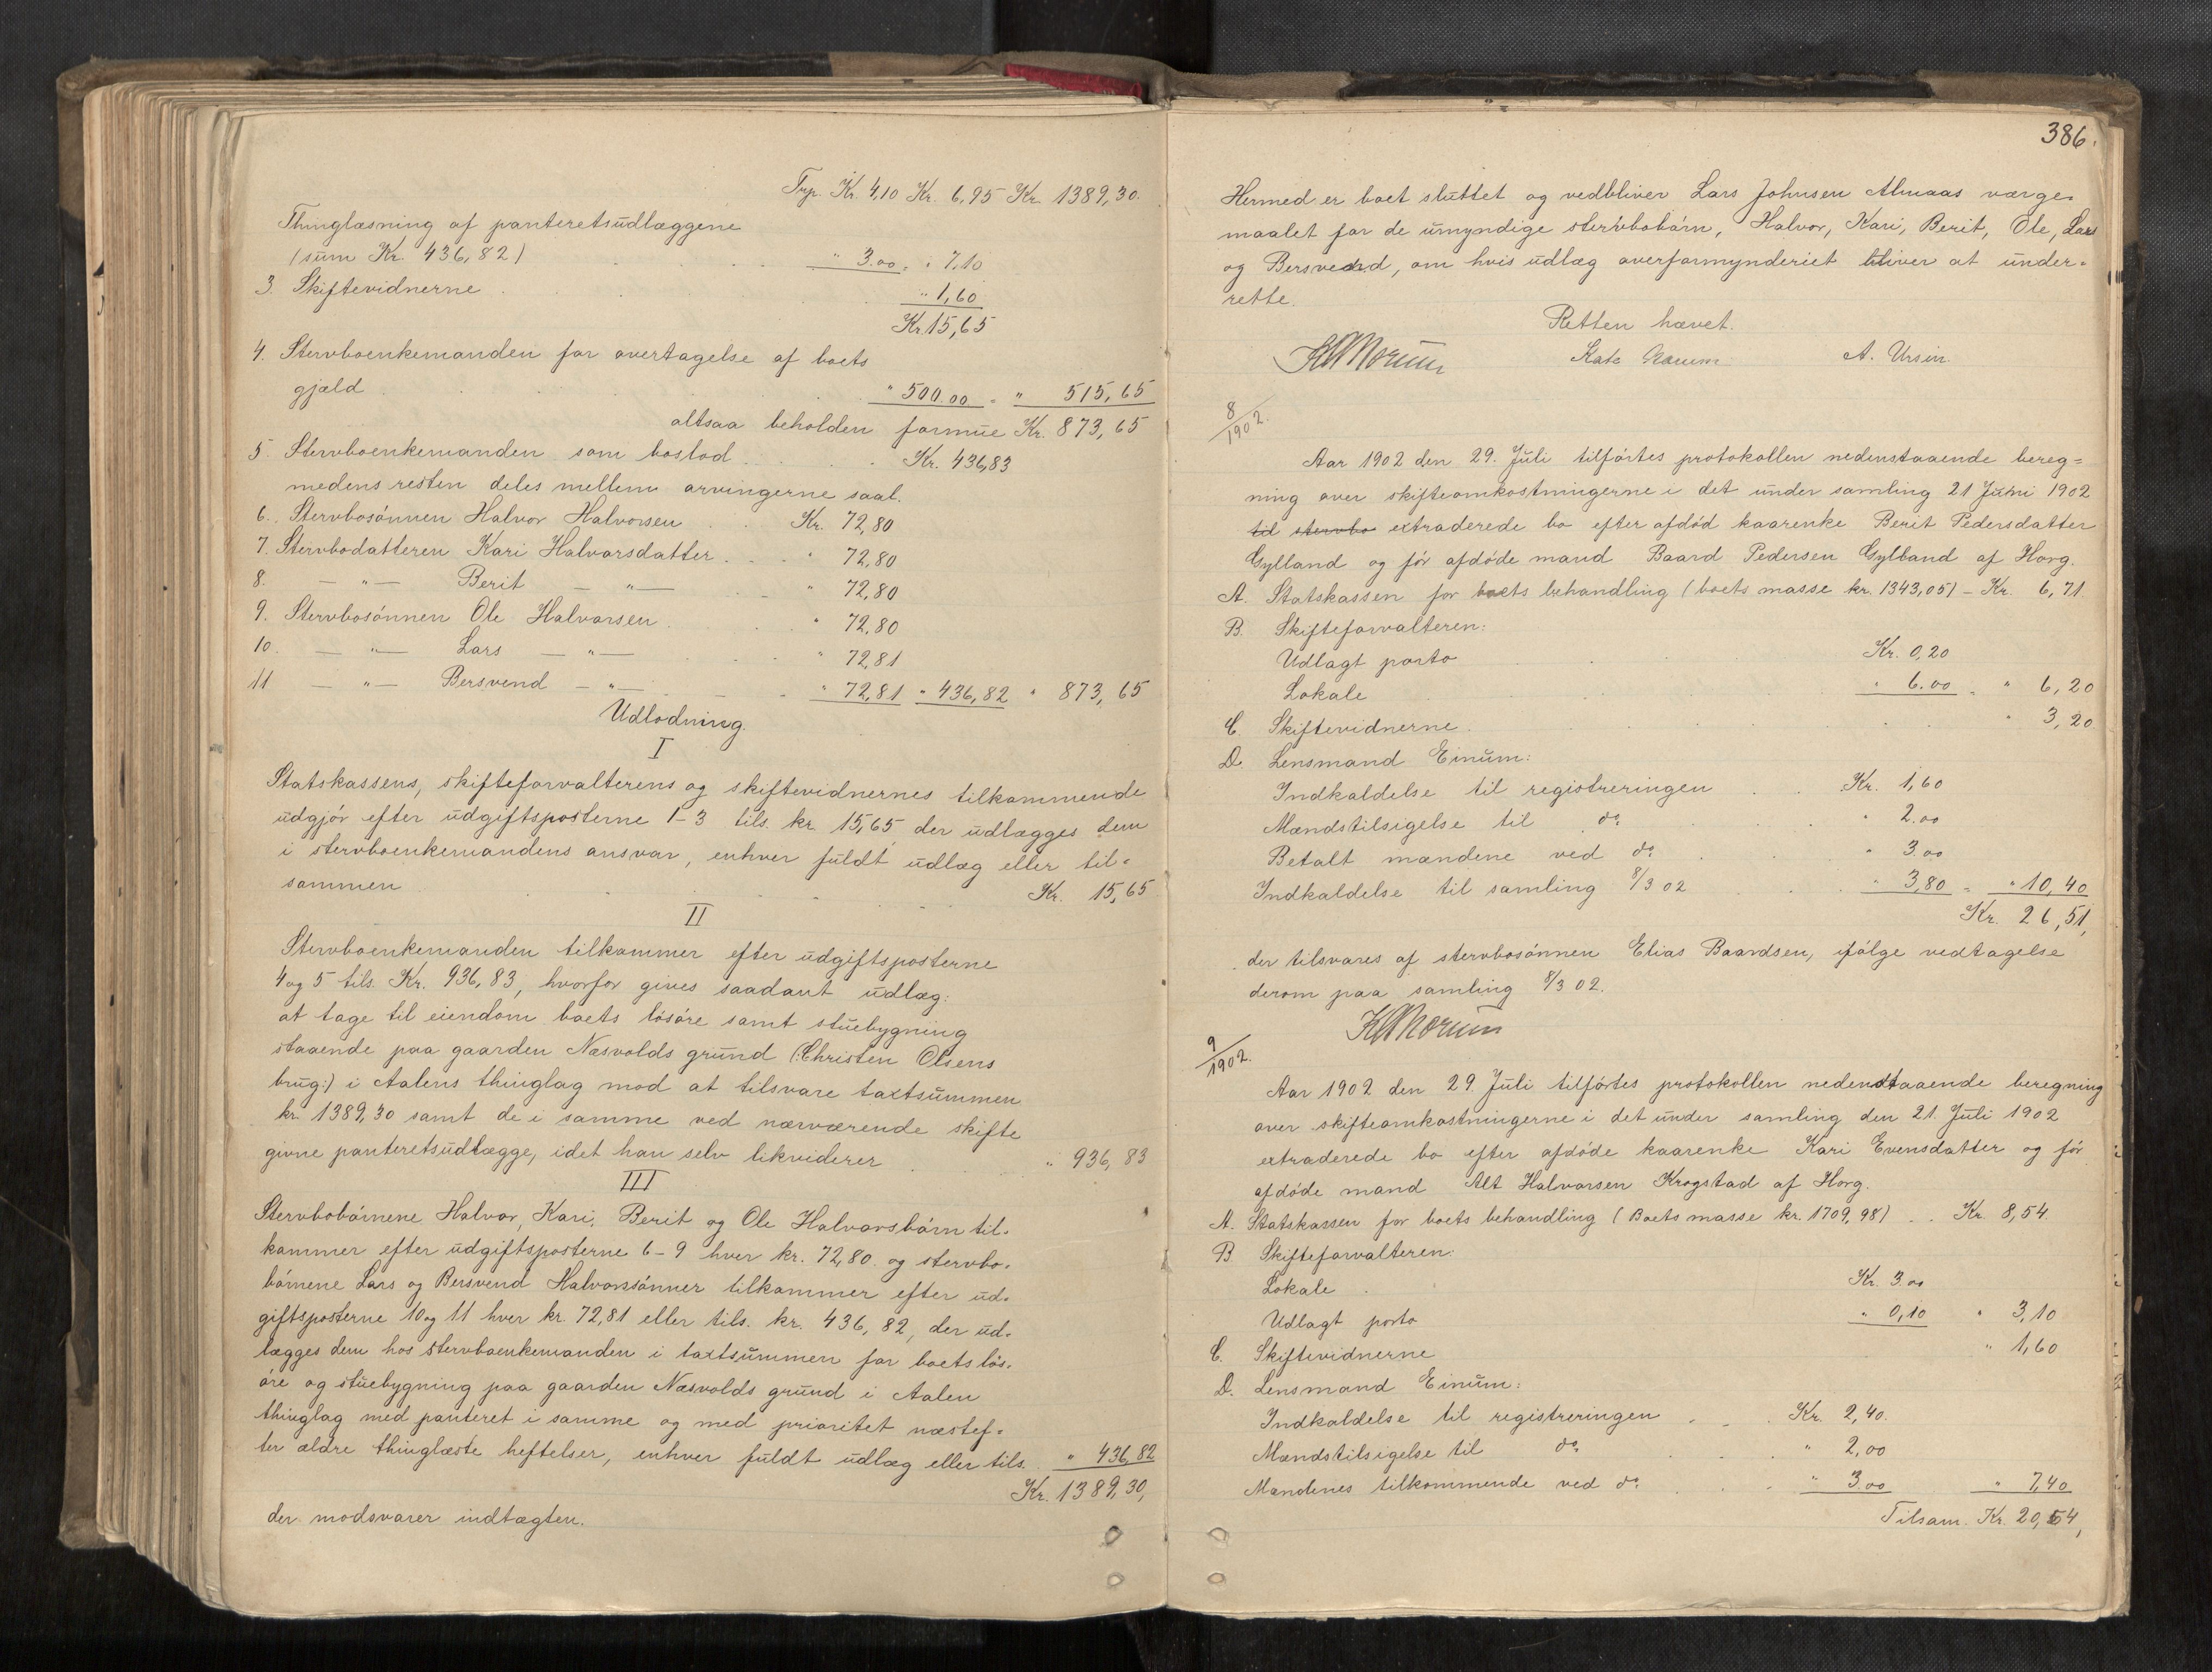 Trp. Kr. 4,10 Kr. 6,95 Kr. 1389,30.
Thinglæsning af panteretsudlæggene
(sum Kr. 436,82) " 3.00 = " 7,10
3. Skiftevidnerne " 1,60
Kr. 15,65
4. Stervboenkemanden for overtagelse af boets
gjæld " 500.00 = " 515,65
altsaa beholden formue Kr. 873,65
5. Stervboenkemanden som boslod Kr. 436,83
medens resten deles mellem arvingerne saal.
6. Stervbosönnen Halvor Halvorsen Kr. 72,80
7. Stervbodatteren Kari Halvorsdatter " 72,80
8. — " — Berit — " — " 72,80
9. Stervbosönnen Ole Halvorsen " 72,80
10. — " — Lars — " — " 72,81
11 — " — Bersvend — " — " 72,81 " 436,82 " 873,65
Udlodning.
I
Statskassens, skifteforvalterens og skiftevidnernes tilkommende
udgjör efter udgiftsposterne 1-3 tils. kr. 15,65 der udlægges dem
i stervboenkemandens ansvar, enhver fuldt udlæg eller til=
sammen Kr. 15,65
II
Stervboenkemanden tilkommer efter udgiftsposterne
4 og 5 tils. Kr. 936,83, hvorfor gives saadant udlæg:
at tage til eiendom boets lösöre samt stuebygning
staaende paa gaarden Næsvolds grund (:Christen Olsens
brug:) i Aalens thinglag mod at tilsvare taxtsummen
kr. 1389,30 samt de i samme ved nærværende skifte
givne panteretsudlægge, idet han selv likviderer " 936,83
III
Stervbobörnene Halvor, Kari, Berit og Ole Halvorsbörn til=
kommer efter udgiftsposterne 6-9 hver kr. 72,80 og stervbo=
börnene Lars og Bersvend Halvorssönner tilkommer efter ud=
giftsposterne 10 og 11 hver kr. 72,81 eller tils. kr. 436,82, der ud=
lægges dem hos stervboenkemanden i taxtsummen for boets lös=
öre og stuebygning paa gaarden Næsvolds grund i Aalen
thinglag med panteret i samme og med prioritet næstef=
ter ældre thinglæste heftelser, enhver fuldt udlæg eller tils. " 436,82
Kr. 1389,30,
der modsvarer indtægten.
386.
Hermed er boet sluttet og vedbliver Lars Johnsen Almaas værge=
maalet for de umyndige stervbobörn, Halvor, Kari, Berit, Ole, Lars
og Bersvend, om hvis udlæg overformynderiet bliver at under=
rette.
Retten hævet.
A. Ursin.
8/1902.
Aar 1902 den 29. Juli tilförtes protokollen nedenstaaende bereg=
ning over skifteomkostningerne i det under samling 21 Juni 1902
til stervbo extraderede bo efter afdöd kaarenke Berit Pedersdatter
Gylland og för afdöde mand Baard Pedersen Gylland af Horg.
A. Statskassen for boets behandling (boets masse kr. 1343,05) — Kr. 6,71
B. Skifteforvalteren:
Udlagt porto Kr. 0,20
Lokale " 6.00 = " 6,20
C. Skiftevidnerne " 3,20
D. Lensmand Einum:
Indkaldelse til registreringen Kr. 1,60
Mændstilsigelse til do " 2.00
Betalt mændene ved do " 3.00
Indkaldelse til samling 8/3 02 " 3,80 = " 10,40
Kr. 26,51,
der tilsvares af stervbosönnen Elias Baardsen, ifölge vedtagelse
derom paa samling 8/3 02.
9/1902.
Aar 1902 den 29. Juli tilförtes protokollen nedenstaaende beregning
over skifteomkostningerne i det under samling den 21. Juli 1902
extraderede bo efter afdöde kaarenke Kari Evensdatter og för
afdöde mand Alt Halvorsen Krogstad af Horg.
A. Statskassen for boets behandling (Boets masse kr. 1709,98) Kr. 8,54
B Skifteforvalteren:
Lokale Kr. 3.00
Udlagt porto " 0,10 " 3,10
C. Skiftevidnerne " 1,60
D. Lensmand Einum:
Indkaldelse til registreringen Kr. 2,40.
Mændstilsigelse til do " 2,00
Mændenes tilkommende ved do " 3.00 " 7,40
Tilsam. Kr. 20,64,